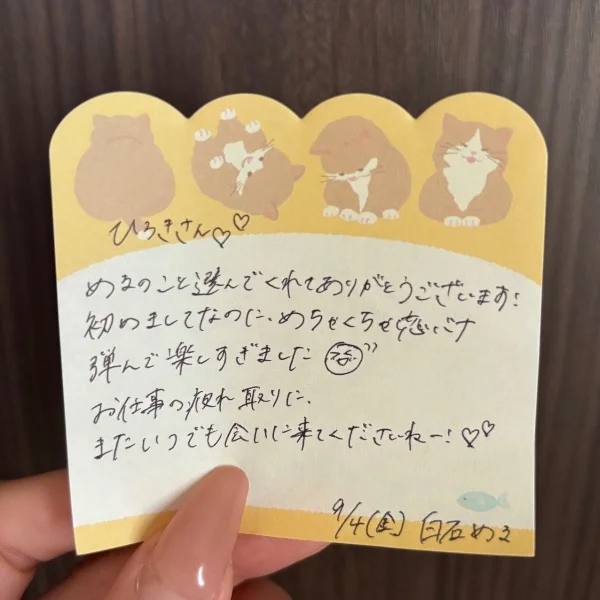 ひろきさん♡♡
めるのこと選んでくれてありがとうございます!
初めましてなのに、めちゃくちゃ
弾んで楽しすぎました
お仕事の疲れ取りに、
またいつでも会いに来てくださいねー!♡♡
9/4(金) 白石める